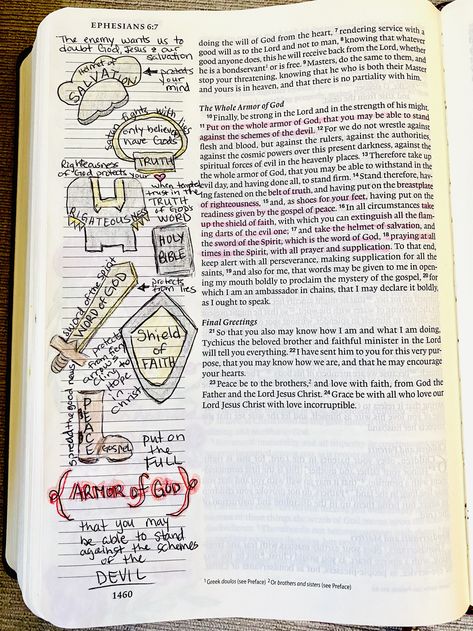 EPHESIANS 6:7
The enemy wants us to
doubt God, Jesus & our
salvation
Helmet of
SALVATION
protects
your
mind
satan fights with lies
only believers
have God's
TRUTH
Righteousness
of God protects your
when tempted
trust in the
TRUTH
of GODS
WORD
RIGHTEOUSNESS
HOLY
BIBLE
sword of the spirit
WORD of GOD
protects
from lies
Shield
of
FAITH
protects
from fear
cling
to
Hope
in
Christ
spread the good news
PEACE
Gospel
put on
the
FULL
ARMOR of GOD
that you may
be able to stand
against the schemes
of the
DEVIL
1460
doing the will of God from the heart, 7 rendering service with a
good will as to the Lord and not to man, 8 knowing that whatever
good anyone does, this he will receive back from the Lord, whether
he is a bondservant1 or is free. 9 Masters, do the same to them, and
stop your threatening, knowing that he who is both their Master
and yours is in heaven, and that there is no partiality with him.
The Whole Armor of God
10 Finally, be strong in the Lord and in the strength of his might.
11 Put on the whole armor of God, that you may be able to stand
against the schemes of the devil. 12 For we do not wrestle against
flesh and blood, but against the rulers, against the authorities,
against the cosmic powers over this present darkness, against the
spiritual forces of evil in the heavenly places. 13 Therefore take up
the whole armor of God, that you may be able to withstand in the
evil day, and having done all, to stand firm. 14 Stand therefore, hav-
ing fastened on the belt of truth, and having put on the breastplate
of righteousness, 15 and, as shoes for your feet, having put on the
readiness given by the gospel of peace. 16 In all circumstances take
up the shield of faith, with which you can extinguish all the flam-
ing darts of the evil one; 17 and take the helmet of salvation, and
the sword of the Spirit, which is the word of God, 18 praying at all
times in the Spirit, with all prayer and supplication. To that end,
keep alert with all perseverance, making supplication for all the
saints, 19 and also for me, that words may be given to me in open-
ing my mouth boldly to proclaim the mystery of the gospel, 20 for
which I am an ambassador in chains, that I may declare it boldly,
as I ought to speak.
Final Greetings
21 So that you also may know how I am and what I am doing,
Tychicus the beloved brother and faithful minister in the Lord
will tell you everything. 22 I have sent him to you for this very pur-
pose, that you may know how we are, and that he may encourage
your hearts.
23 Peace be to the brothers,2 and love with faith, from God the
Father and the Lord Jesus Christ. 24 Grace be with all who love our
Lord Jesus Christ with love incorruptible.
1 Greek doulos (see Preface) 2 Or brothers and sisters (see Preface)